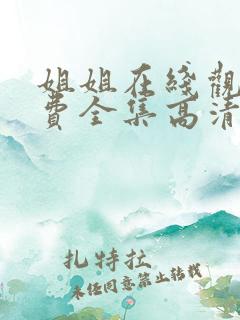 姐姐在线觀
費全集高清
扎特拉
未经同意禁止转载